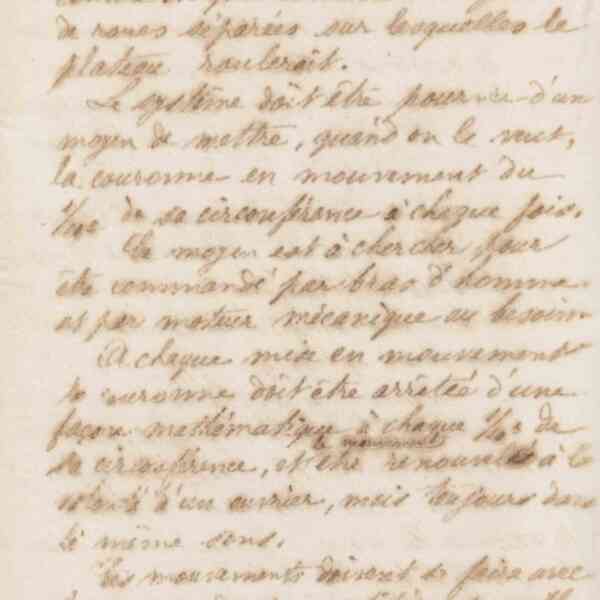 de roues séparées sur lesquelles le
plateau rouleroit.
Le système doit être pourvu d'un
moyen de mettre, quand on le veut,
la couronne en mouvement du
de sa circonférence à chaque fois.
Ce moyen est à chercher, pour
être commandé par bras d'homme
et par moteur mécanique au besoin
A chaque mise en mouvement
la couronne doit être arrêtée d'une
façon mathématique à chaque de
le mouvement
sa circonférence, et être renouvelé à la
volonté d'un ouvrier, mais toujours dans
le même sens.
Les mouvements doivent se faire avec